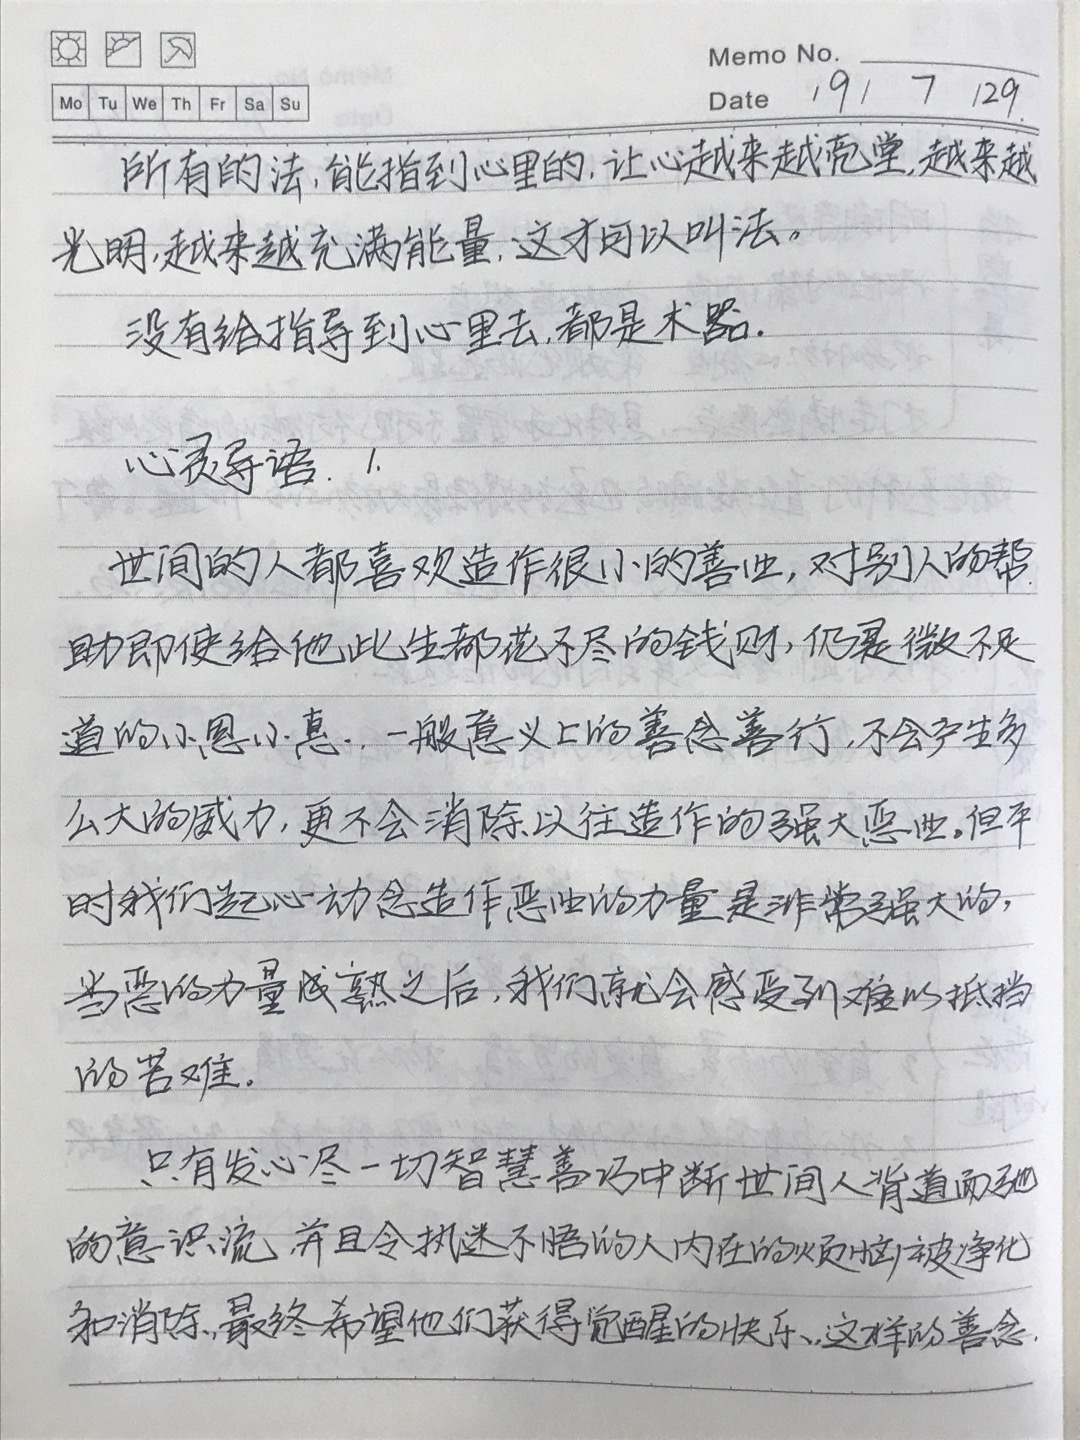 Memo No.
Mo Tu We Th Fr Sa Su
Date 19/ 7 /29.
所有的法,能指到心里的,让心越来越亮堂,越来越
光明,越来越充满能量,这才可以叫法。
没有给指导到心里去,都是术器.
心灵导语. 1.
世间的人都喜欢造作很小的善业,对别人的帮
助即使给他此生都花不尽的钱财,仍是微不足
道的小恩小惠.,一般意义上的善念善行,不会产生多
么大的威力,更不会消除以往造作的强大恶业。但平
时我们起心动念造作恶业的力量是非常强大的,
当恶的力量成熟之后,我们就会感受到难以抵挡
的苦难.
只有发心尽一切智慧善巧中断世间人背道而驰
的意识流,并且令执迷不悟的人内在的烦恼被净化
和消除,最终希望他们获得觉醒的快乐,这样的善念.